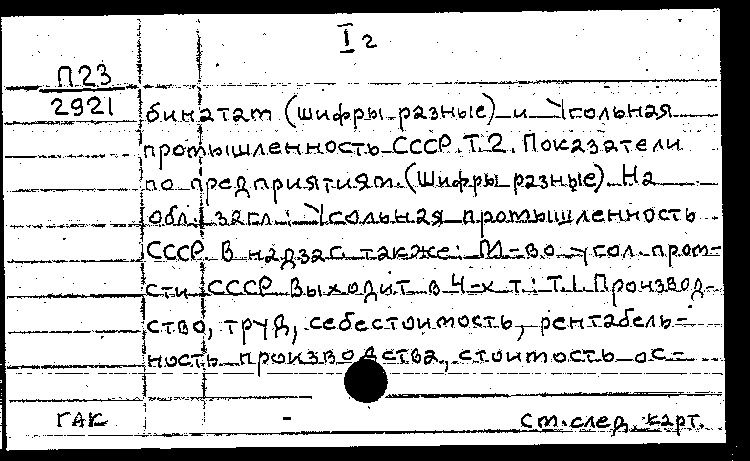 I г
П23
2921
бинатам (шифры разные) и Угольная
промышленность СССР. Т.2. Показатели
по предприятиям. (Шифры разные). На
обл. загл.: Угольная промышленность
СССР. В надзаг. также: М-во угол. пром-
сти СССР. Выходит в 4-х т.: Т.1. Производ-
ство, труд, себестоимость, рентабель-
ность производства, стоимость ос-
ГАК - См. след. карт.